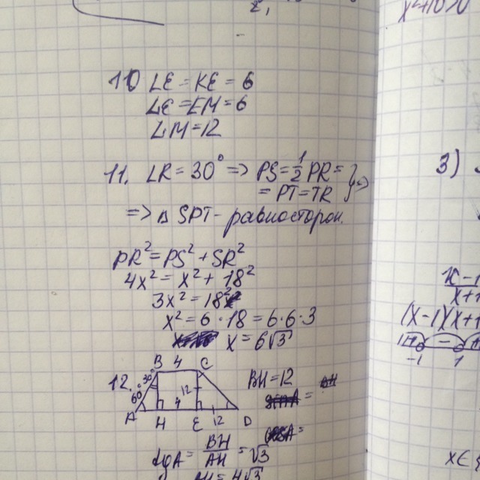 10 LE = KE = 6
LE = EM = 6
LM = 12
11. ∠R = 30° => PS = 1/2 PR =
= PT = TR } =>
=> △ SPT - равносторон.
PR² = PS² + SR²
4x² = x² + 18²
3x² = 18²
x² = 6 · 18 = 6·6·3
x = 6√3
12.
B 4 C
60° 30° 12
4 12
A H E D
BH = 12
tgA = BH/AH = √3
AH = 4√3
3)
x-1
(x-1)(x+1
- 
-1 1
x∈